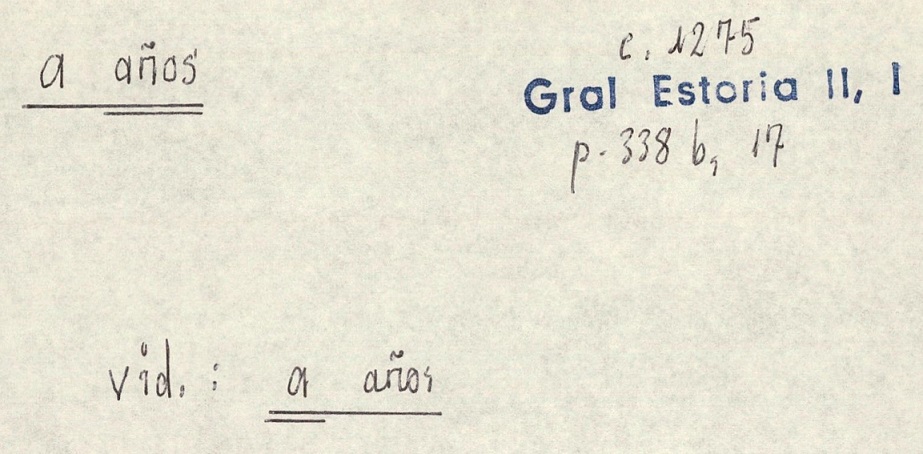 a años
c. 1275
Gral Estoria II, I
p. 338 b, 17
vid. : a años